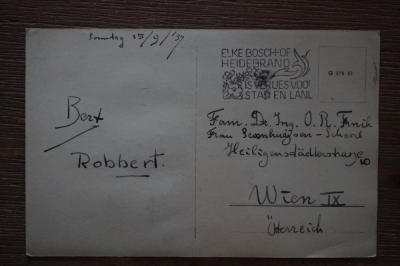 Sonntag 15/9/'37
ELKE BOSCH-OF
HEIDEBRAND
IS VERLIES VOOR
STAD EN LAND
G 578 57
Bert
Robbert.
Fam. Dr. Ing. O. R.
Frau
Heiligenstädterstrasse
Wien IX
Österreich